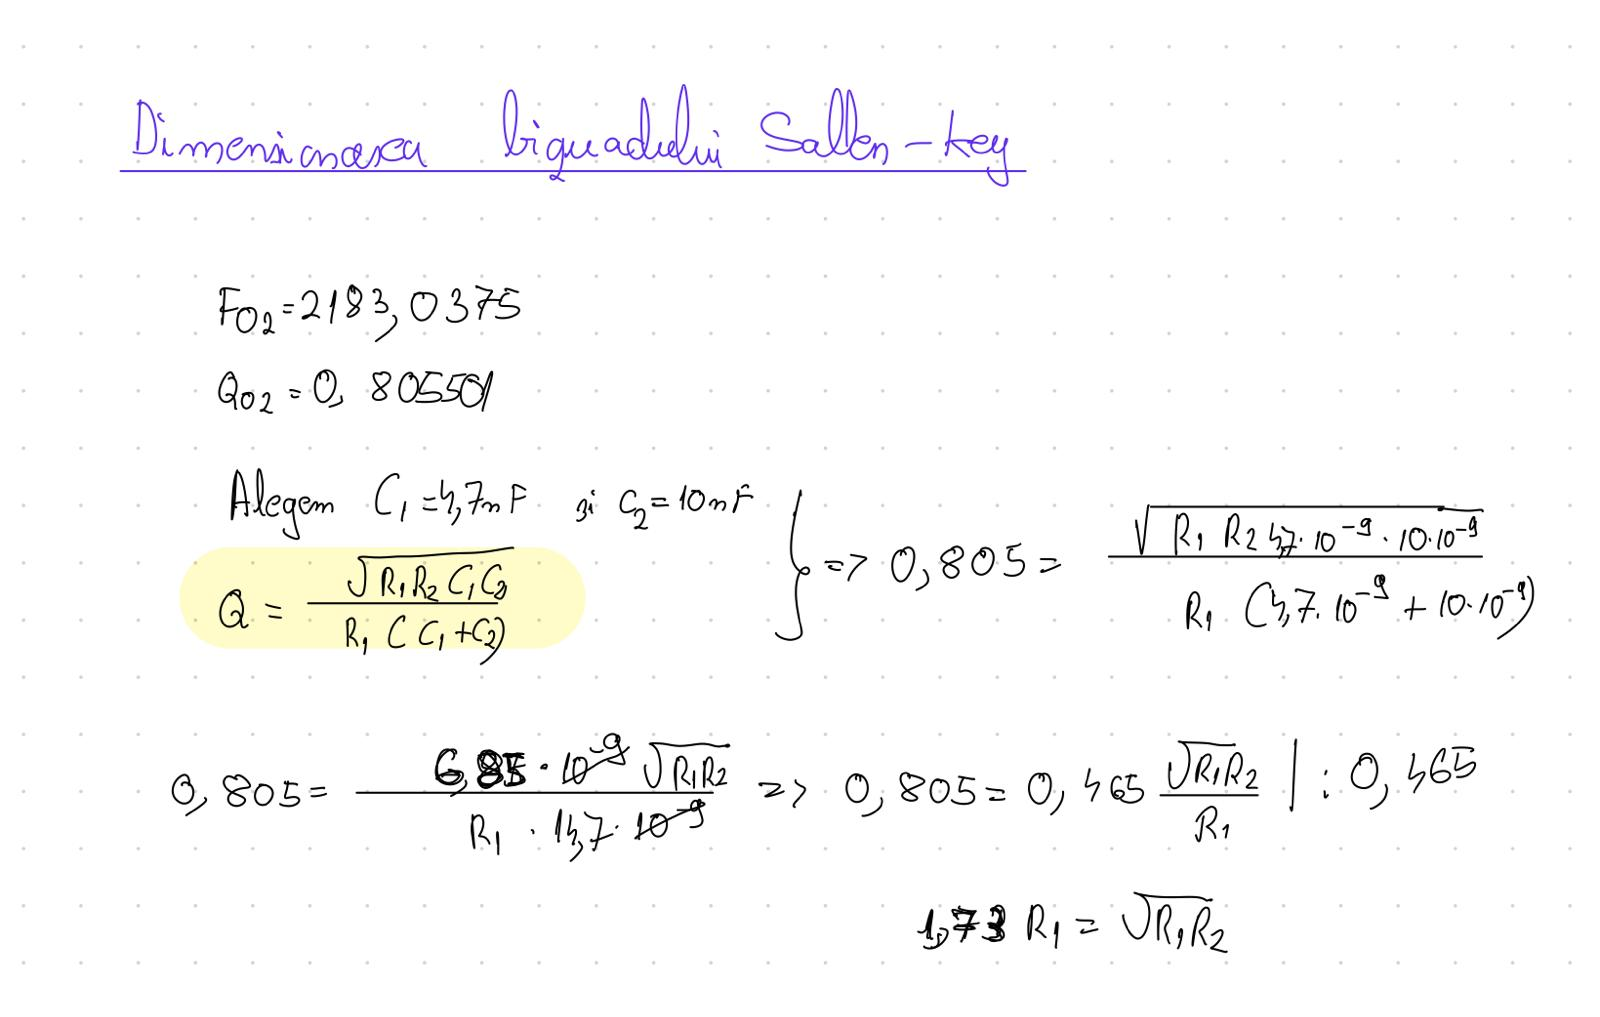 Dimensionarea biquadului Sallen-key
F02=2183,0375
Q02=0,805501
Alegem C1=4,7nF și C2=10nF } => 0,805= √(R1 R2 4,7·10^-9·10·10^-9) / R1 (4,7·10^-9 + 10·10^-9)
Q = √(R1R2C1C2) / R1(C1+C2)
0,805= 6,85·10^-9 √(R1R2) / R1·14,7·10^-9 => 0,805=0,465 √(R1R2) / R1 | : 0,465
1,73 R1 = √(R1R2)